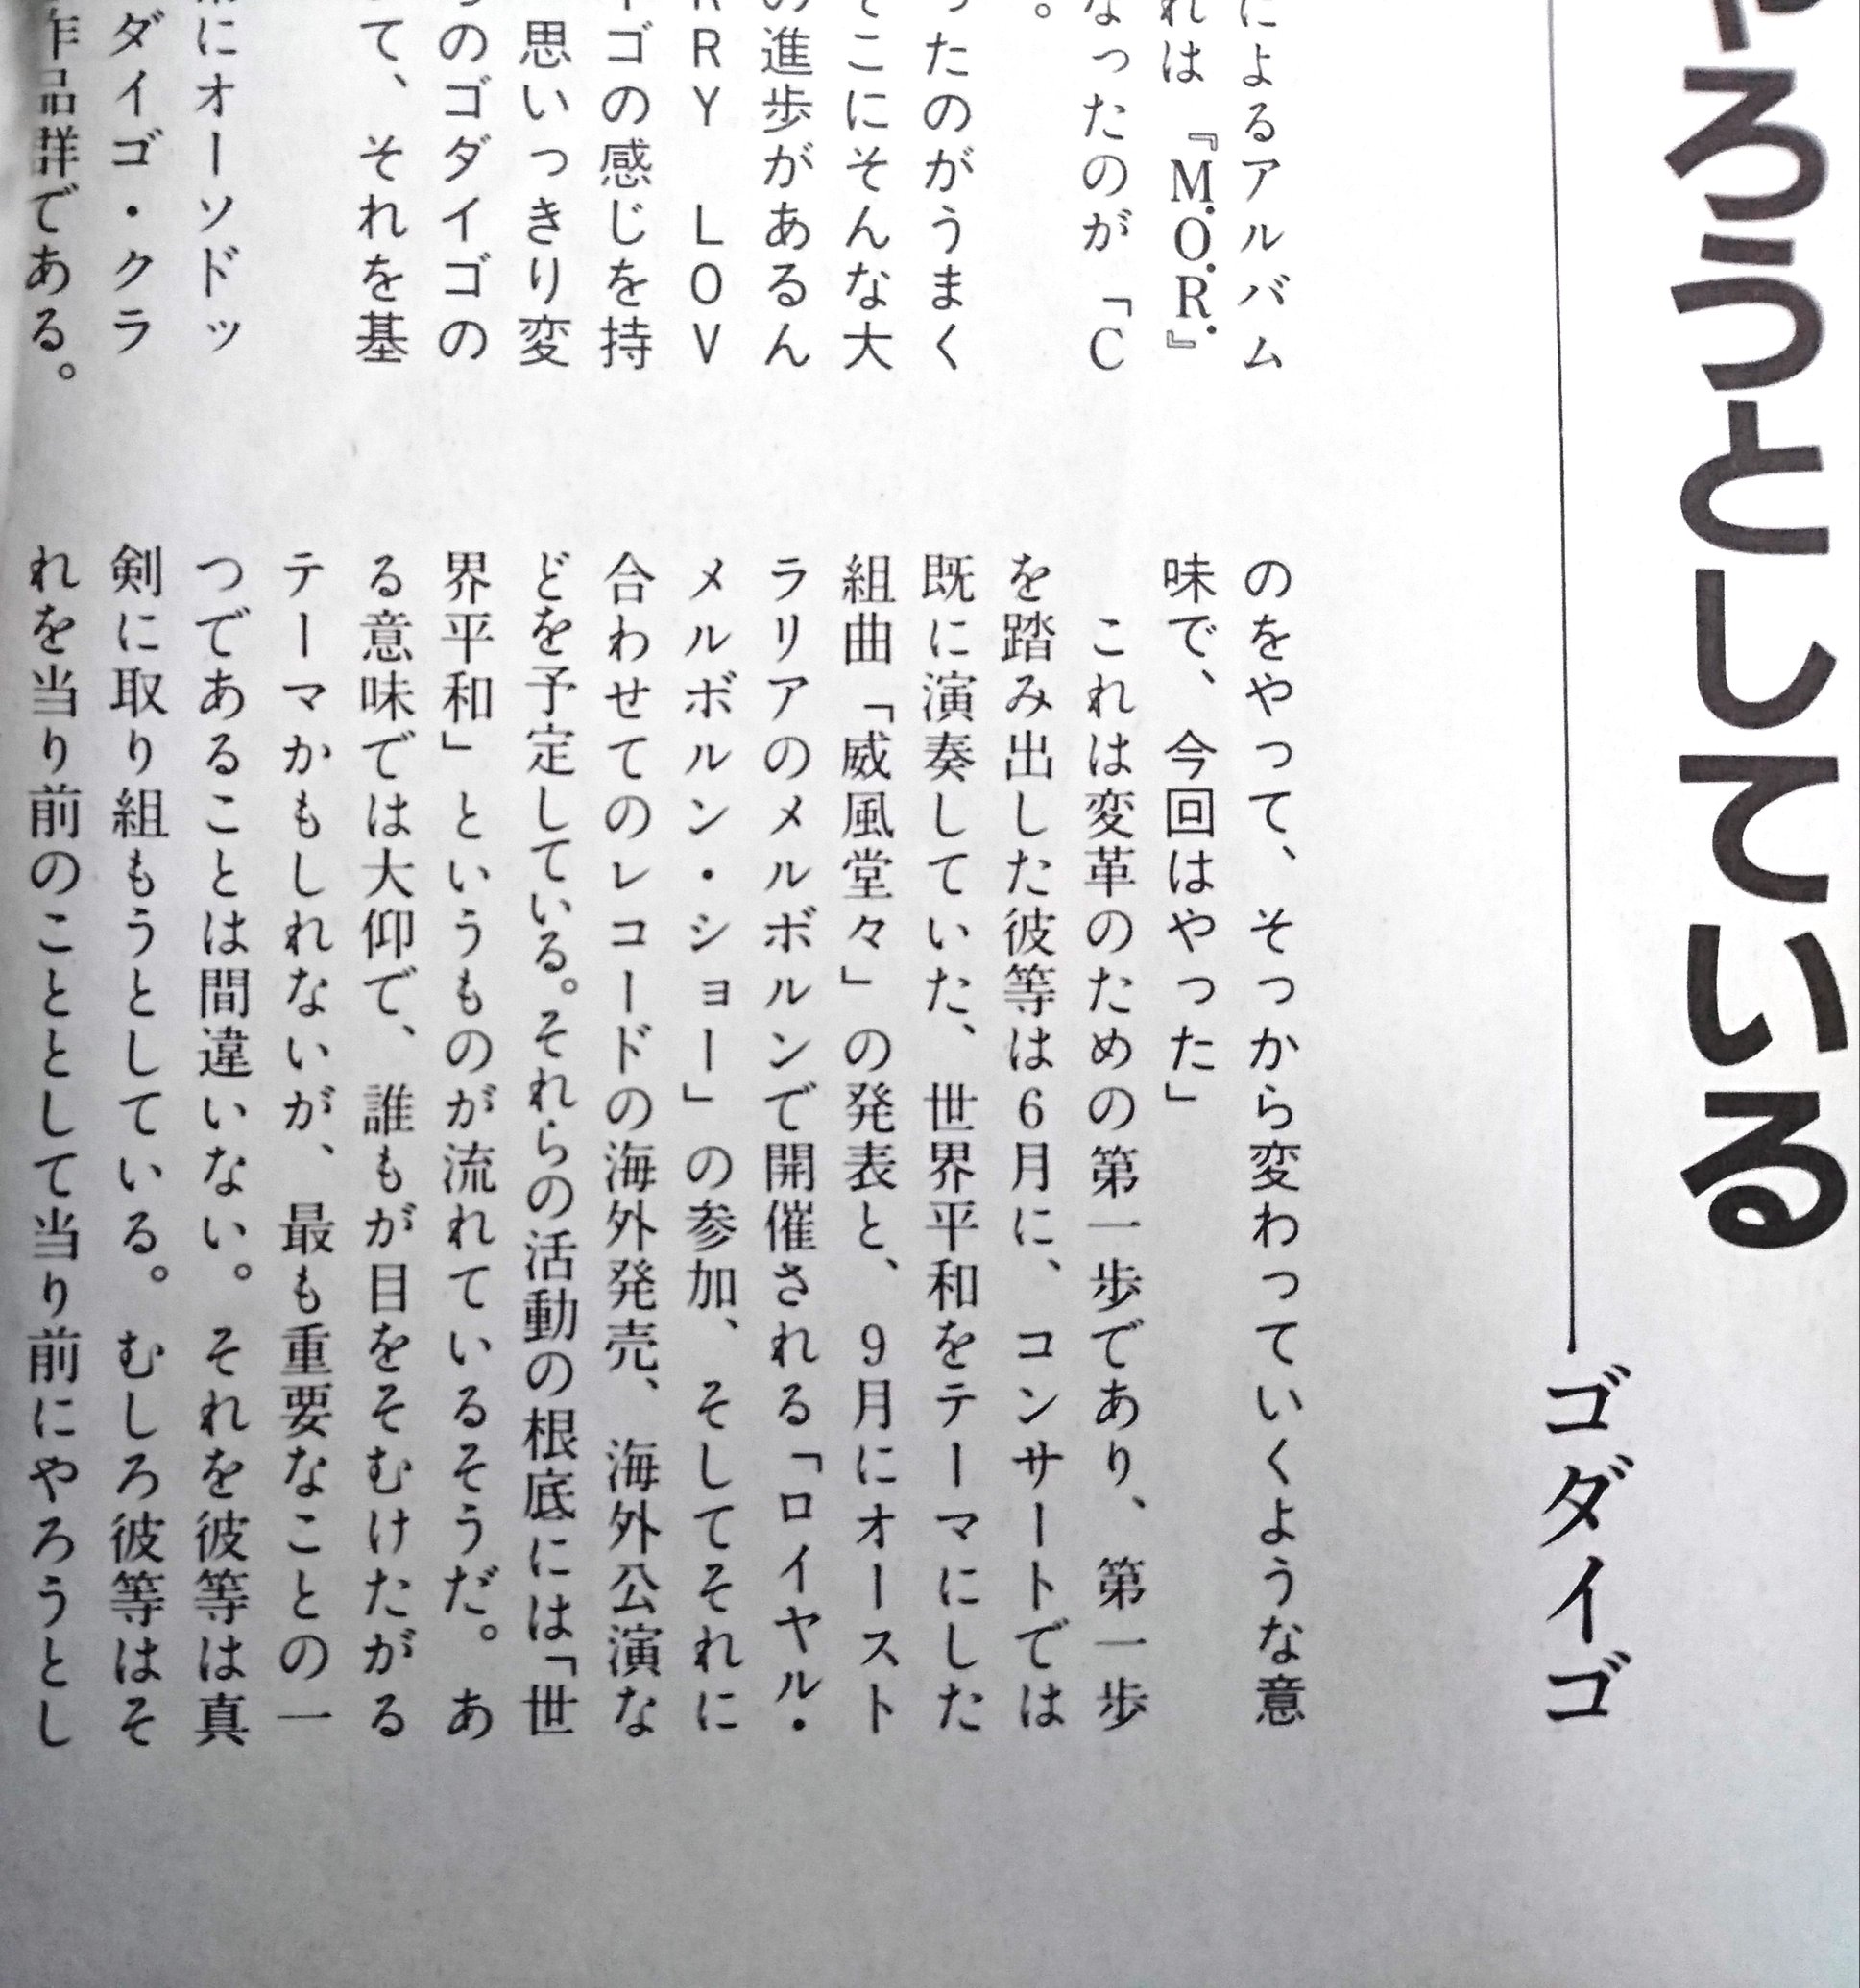 やろうとしている
ゴダイゴ
によるアルバム
れは『M.O.R.』
なったのが「C
。
ったのがうまく
そこにそんな大
の進歩があるん
RRY LOV
イゴの感じを持
思いっきり変
のゴダイゴの
て、それを基
にオーソドッ
ダイゴ・クラ
作品群である。
のをやって、そっから変わっていくような意
味で、今回はやった」
これは変革のための第一歩であり、第一歩
を踏み出した彼等は6月に、コンサートでは
既に演奏していた、世界平和をテーマにした
組曲「威風堂々」の発表と、9月にオースト
ラリアのメルボルンで開催される「ロイヤル・
メルボルン・ショー」の参加、そしてそれに
合わせてのレコードの海外発売、海外公演な
どを予定している。それらの活動の根底には「世
界平和」というものが流れているそうだ。あ
る意味では大仰で、誰もが目をそむけたがる
テーマかもしれないが、最も重要なことの一
つであることは間違いない。それを彼等は真
剣に取り組もうとしている。むしろ彼等はそ
れを当り前のこととして当り前にやろうとし